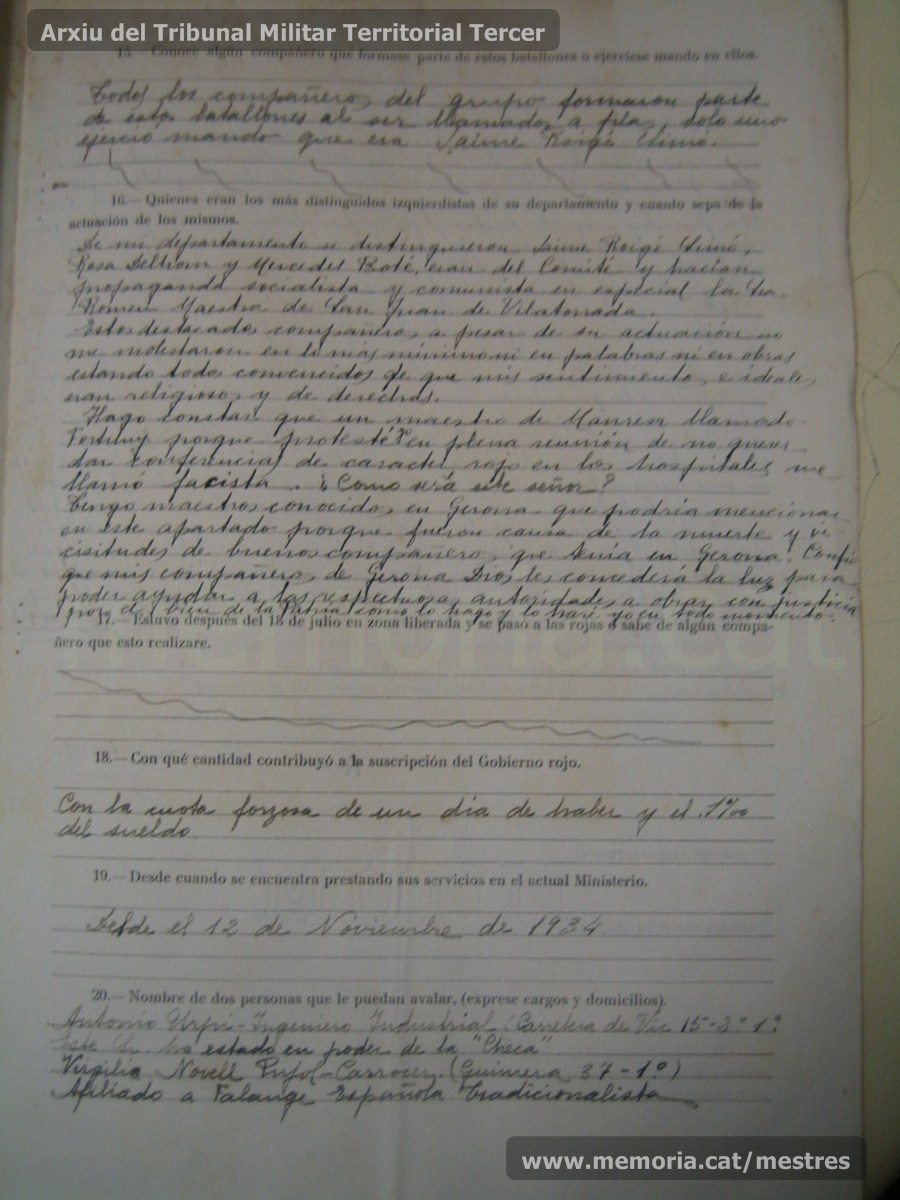 Arxiu del Tribunal Militar Territorial Tercer
15.— Conoce algún compañero que formase parte de estos batallones o ejerciese mando en ellos.
Todos los compañeros del grupo formaron parte
de estos batallones al ser llamados a fila, solo uno
ejerció mando que era Jaime Roigé
16.— Quienes eran los más distinguidos izquierdistas de su departamento y cuanto sepa de la
actuación de los mismos.
De mi departamento se distinguieron Jaume Roigé
Rosa y Mercedes Boté, eran del Comité y hacían
propaganda socialista y comunista en especial la Sra
Romeu Maestra de San Juan de Vilatorrada.
Estos destacados compañeros a pesar de su actuación no
me molestaron en lo más mínimo ni en palabras ni en obras
estando todos convencidos de que mis sentimientos e ideales
eran religiosos y de derechas.
Hago constar que un maestro de Manresa llamado
Fortuny porque protesté yo en plena reunión de no querer
dar conferencias de caracter rojo en los hospitales me
llamó facista. ¿Como será este señor?
Tengo maestros conocidos en Gerona que podría mencionar
en este apartado porque fueron causa de la muerte y vi-
cisitudes de buenos compañeros que tenía en Gerona. Confío
que mis compañeros de Gerona Dios les concederá la luz para
poder ayudar a las respectuosas autoridades a obrar con justicia
por el bien de la Patria como lo hago y lo haré yo en todo momento.
17.— Estuvo después del 18 de julio en zona liberada y se pasó a las rojas o sabe de algún compa-
ñero que esto realizare.
18.— Con qué cantidad contribuyó a la suscripción del Gobierno rojo.
Con la cuota forzosa de un día de haber y el 1%
del sueldo.
19.— Desde cuando se encuentra prestando sus servicios en el actual Ministerio.
Desde el 12 de Noviembre de 1934
20.— Nombre de dos personas que le puedan avalar, (exprese cargos y domicilios).
Antonio Urpí - Ingeniero Industrial (Carretera de Vic 15-2º 1ª
Este Sr. ha estado en poder de la "Checa"
Virgilio Novell Pujol - Carrocer. (Guimerá 37-1º)
Afiliado a Falange Española Tradicionalista
www.memoria.cat/mestres